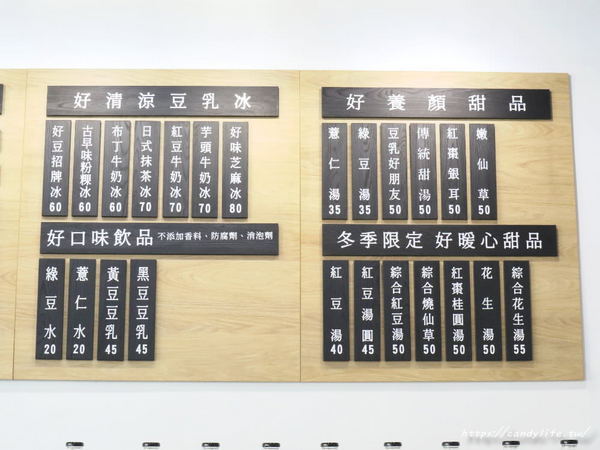 好清涼豆乳冰
好豆招牌冰 60
古早味粉粿冰 60
布丁牛奶冰 60
日式抹茶冰 70
紅豆牛奶冰 70
芋頭牛奶冰 70
好味芝麻冰 80
好口味飲品 不添加香料、防腐劑、消泡劑
綠豆水 20
薏仁水 20
黃豆豆乳 45
黑豆豆乳 45
好養顏甜品
薏仁湯 35
綠豆湯 35
豆乳好朋友 50
傳統甜湯 50
紅棗銀耳 50
嫩仙草 50
冬季限定 好暖心甜品
紅豆湯 40
紅豆湯圓 45
綜合紅豆湯 50
綜合燒仙草 50
紅棗桂圓湯 50
花生湯 50
綜合花生湯 55
https://candylife.tw/